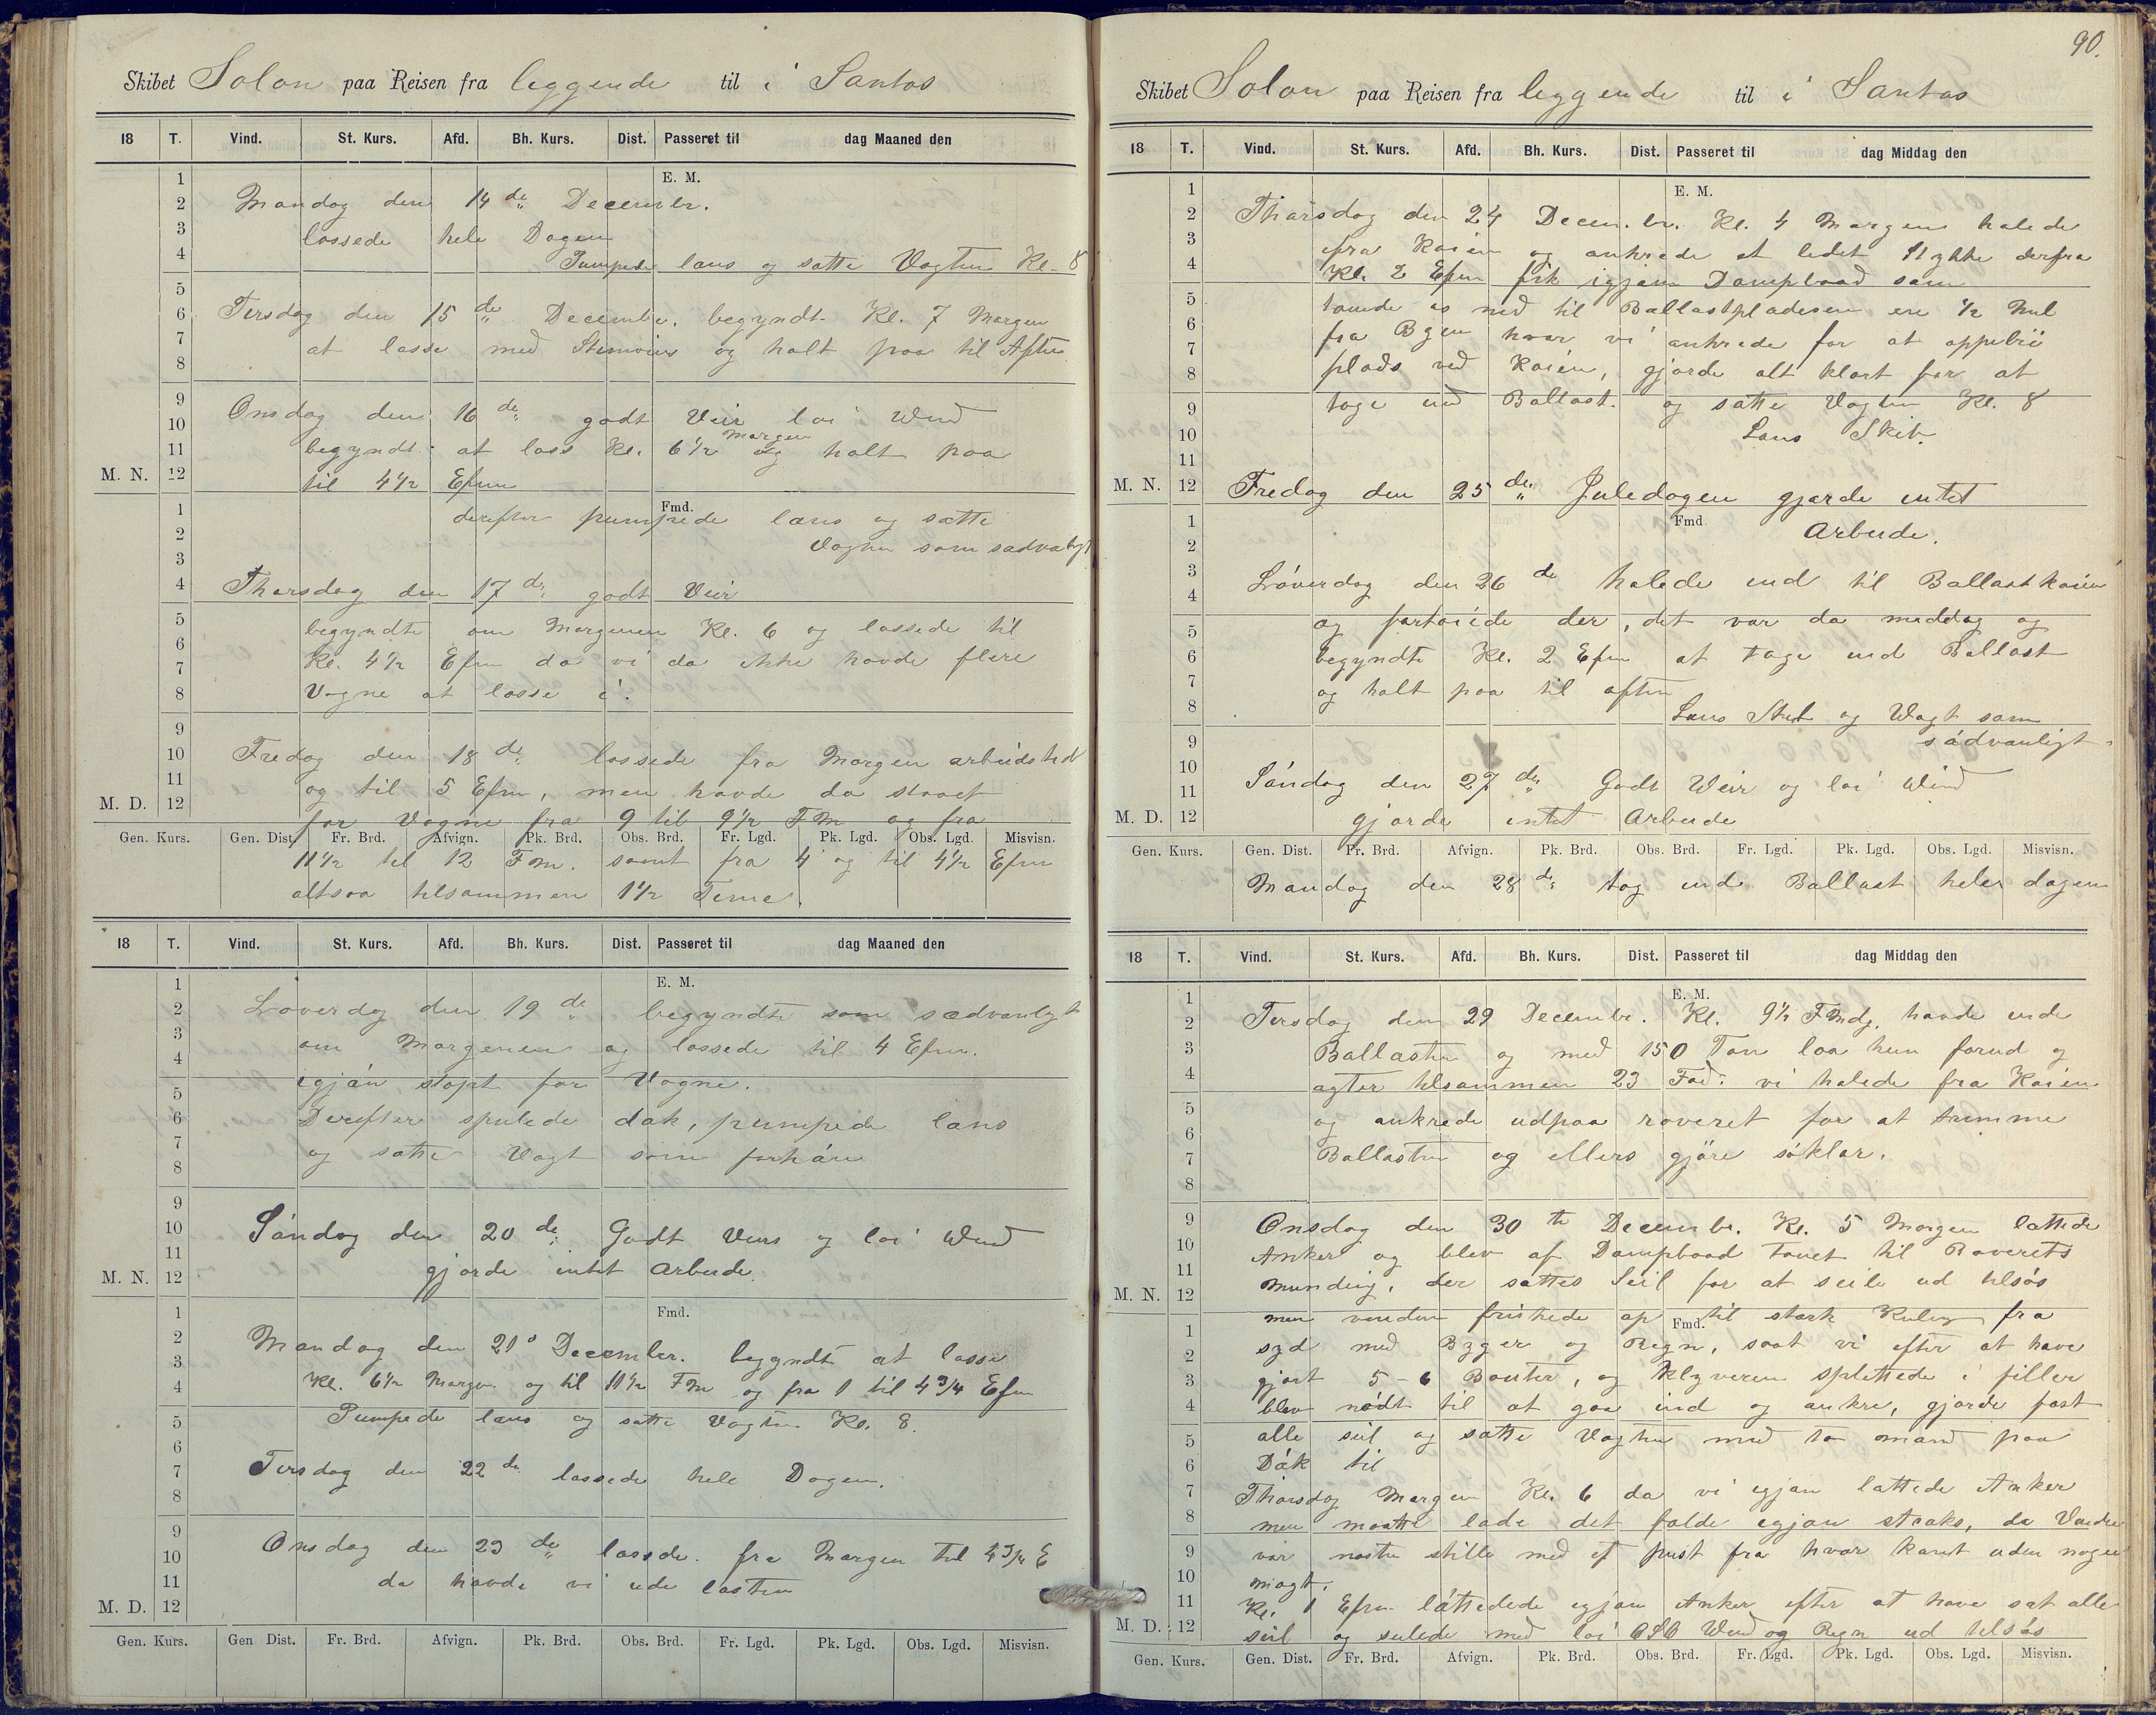 Skibet Solon paa Reisen fra leggende til i Santos
18 T. Vind. St. Kurs. Afd. Bh. Kurs. Dist. Passeret til dag Maaned den
E. M.
Mandag den 14 de December.
lossede hele Dagen
Pumpede læns og satte Vagten Kl. 8
Tirsdag den 15 de Decembr. begyndt Kl. 7 Morgen
at losse med og holt paa til Aften
Onsdag den 16 de godt Veir loi Wind
begyndt at loss Kl. 6 1/2 Morgen og holt paa
M. N. til 4 1/2 Efmn
Fmd.
derefter pumpede læns og satte
Vagten som sædvaligt
Thorsdag den 17 de godt Veir
begyndte om Morgenen Kl. 6 og lossede til
Kl. 4 1/2 Efm da vi da ikke havde flere
Vogne at losse i.
Fredag den 18 de lossede fra Morgen arbeidstid
og til 5 Efm, men havde da staaet
M. D.
for Vogne fra 9 til 9 1/2 FM og fra
Gen. Kurs. Gen. Dist. Fr. Brd. Afvign. Pk. Brd. Obs. Brd. Fr. Lgd. Pk. Lgd. Obs. Lgd. Misvisn.
11 1/2 til 12 FM. samt fra 4 og til 4 1/2 Efm
altsaa tilsammen 1 1/2 Time.
18 T. Vind. St. Kurs. Afd. Bh. Kurs. Dist. Passeret til dag Maaned den
E. M.
Loverdag den 19 de begyndte som sædvanlygt
om Morgenen og lossede til 4 Efm.
igján stopt for Vogne.
Derefter spulede dæk, pumpede læns
og satte Vagt som forháre
Sóndag den 20 de Godt Veir og loi Wind
M. N. gjorde intet Arbeide.
Fmd.
Mandag den 21 December. begyndte at losse
Kl. 6 1/2 Morgn. og til 11 1/2 FM og fra 1 til 4 3/4 Efm
Pumpede læns og satte Vagten Kl. 8.
Tirsdag den 22 de lossede hele Dagen.
Onsdag den 23 de lossde. fra Morgen til 4 3/4 E
da havde vi ude lasten
M. D.
Gen. Kurs. Gen Dist. Fr. Brd. Afvign. Pk. Brd. Obs. Brd. Fr. Lgd. Pk. Lgd. Obs. Lgd. Misvisn.
90.
Skibet Solon paa Reisen fra leggende til i Santos
18 T. Vind. St. Kurs. Afd. Bh. Kurs. Dist. Passeret til dag Middag den
E. M.
Thorsdag den 24 Decem.br. Kl. 4 Morgen halede
fra Kaien og ankrede et lidet stykke derfra
Kl. 2 Efm fik igjæn Dampbaad som
touede os ned til Ballastpladsen 1/2 Mil
fra Byen hvor vi ankrede for at oppebie
plads ved Kaien, gjorde alt klart for at
tage ind Ballast. og satte Vagten Kl. 8
Læns Skib.
M. N. Fredag den 25 de Juledagen gjorde intet
Fmd Arbeide.
Lóverdag den 26 de halede ind til Ballastkaien
og fortoiede der, det var da meddag og
begyndte Kl. 2 Efm at tage ind Ballast
og holt paa til aften
Læns Skib og Wagt som
sádvanligt
Sóndag den 27 de Godt Weir og loi Wind
M. D. gjorde intet Arbeide
Gen. Kurs. Gen. Dist. Fr. Brd. Afvign. Pk. Brd. Obs. Brd. Fr. Lgd. Pk. Lgd. Obs. Lgd. Misvisn.
Mandag den 28 de tog ind Ballast hele dagen
18 T. Vind. St. Kurs. Afd. Bh. Kurs. Dist. Passeret til dag Middag den
E. M.
Tirsdag den 29 Decembr. Kl. 9 1/2 FMdg. havde inde
Ballasten og med 150 Ton laa hun forud og
agter tilsammen 23 Fod. vi halede fra Kaien
og ankrede udpaa roveret for at trimme
Ballasten og ellers gjöre sóklar.
Onsdag den 30 te Decembr. Kl. 5 Morgen lættede
Anker og blev af Dampbaad touet til Roverets
M. N. Munding, der sattes Seil for at seile ud tilsös
men vinden friskede op til stærk Kuling fra
Fmd.
syd med Byger og Regn, saat vi efter at have
gjort 5-6 Bouter, og Klyveren splettede i filler
blev nödt til at gaa ind og ankre, gjorde fast
alle seil og satte Vagten med to mand paa
Dák til
Thorsdag Morgen Kl. 6 da vi igjæn lættede Anker
men maatte lade det falde igjæn straks, da Vinden
var næsten stille med et pust fra hvær kant uden nogen
magt.
Kl. 1 Efm láttedede igjæn Anker efter at have sat alle
M. D. seil og seilede med loi OSO Wind og Regn ud tilsös
Gen. Kurs. Gen. Dist. Fr. Brd. Afvign. Pk. Brd. Obs. Brd. Fr. Lgd. Pk. Lgd. Obs. Lgd. Misvisn.